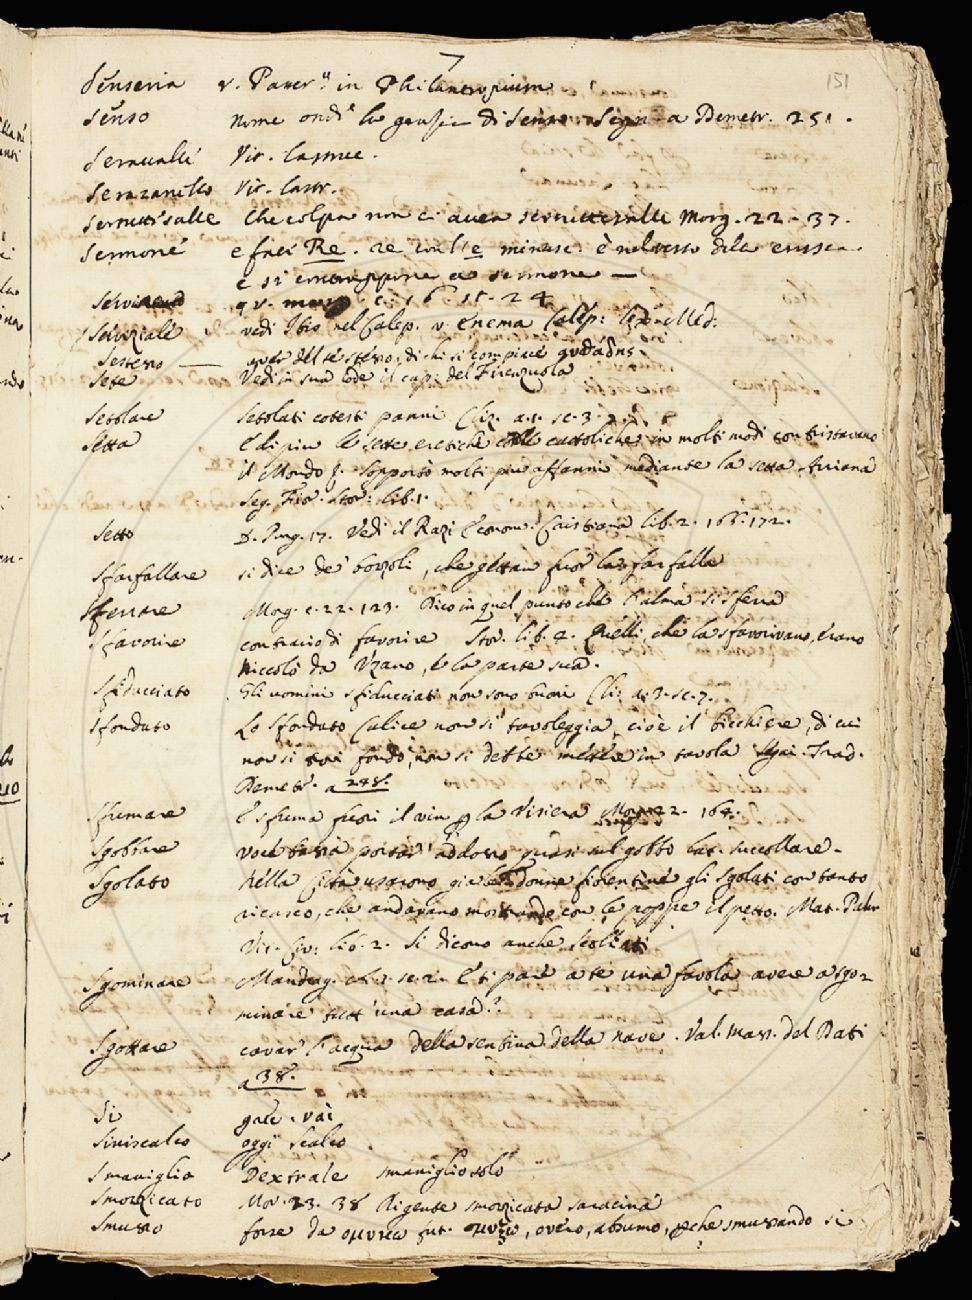 7
151
Senseria v. Paner. in Philantropium
Senso nome ond' la di Senso. Segn. a Demetr. 251.
Seraualle Vit. Castruc.
Serazanello Vit. Castr.
Serrettesalle Che colpa non ci auea serrettesalle Morg. 22. 37.
Sermone e feci Re. re coll' e è nel verso dela
e si contrappone a sermone —
qv. c. 16 15. 24
Serviziale vedi Ibis nel Calep. v. Enema Calep: Lex. Med:
Sestesso — over del se stesso, di chi si compiace
Sete Vedi in sua lode il cap: del Firenzuola
Setolare Setolati cotesti panni Cliz. a. 1. sc. 3.
Setta E di piu le sette eretiche colle cattoliche in molti modi contristavano
il Mondo J. Sopportò molti piu affanni mediante la setta Arriana
Seg. Fior. Stor: lib. 1.
Setto D. Purg. 17. Vedi il Razi Econom. Cristiana lib. 2. 166. 172.
Sfarfallare si dice de' bozzoli, che gettan fuor la farfalla
Sferrare Morg. c. 22. 123. Dico in quel punto che l'alma si sferra
Sfavorire contrario di favorire Stor. lib. 4. Quelli, che la sfavorivano, erano
Niccolò da Uzano, e la parte sua.
Sfiducciato Gli uomini sfiducciati non sono buoni Cliz. a. 3. sc. 7.
Sfondato Lo sfondato Calice non si tavoleggia, cioè il bicchiere, di cui
non si fondò, non si debbe mettere in tavola Segni. Trad.
Demetr. a 248.
Sfumare E sfuma fuori il vin p la visiera Morg. 22. 164.
Sgobbare voce bassa portar' addosso quasi sul gobbo lat. succollare.
Sgolato Nella Città usarono già le donne fiorentine gli sgolati con tanto
ricasco, che andavano mostrando con le poppe il petto. Mat. Palm
Vit. Civ: lib. 2. Si dicono anche scollati
Sgominare Mandrag. at. 1. sc. 2. E' ti pare a te una favola avere a sgo-
minare tutt' una casa?
Sgottare cavar l'acqua della sentina della nave. Val. Mass. del Dati
a 38.
Si vai
Siniscalco oggi scalco
Smaniglia Dextrale smanigliotolo
Smozzicato Mor. 23. 38 Rigente smozzicata saracina
Smusso forse da ομυσσω fut. ομυξω, overo, absumo, pche smussando si